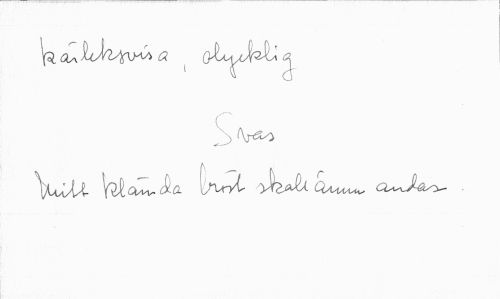 kärleksvisa, olycklig
Svas
Mitt klämda bröst skall ännu andas